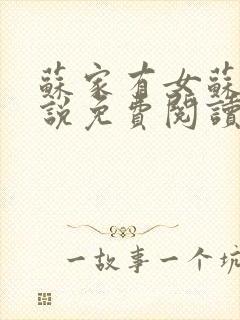 蘇家有女蘇
說免費閱讀
一故事一个坑